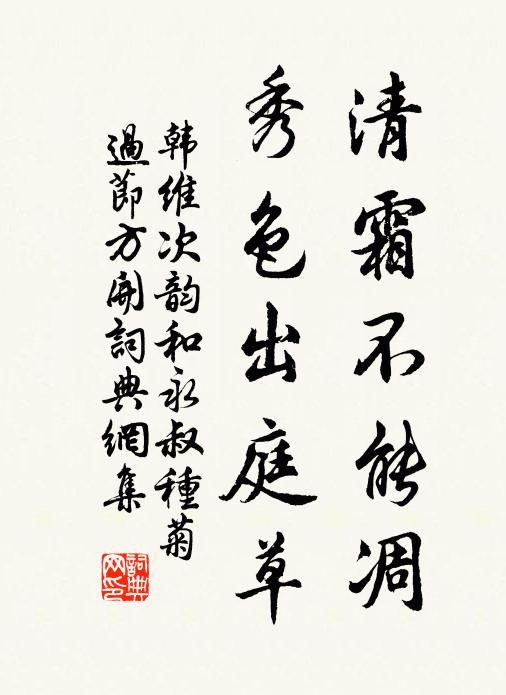 清霜不能凋
秀色出庭草
韩维次韵和永叔種菊
過節方開詞典網集
詞典
网印